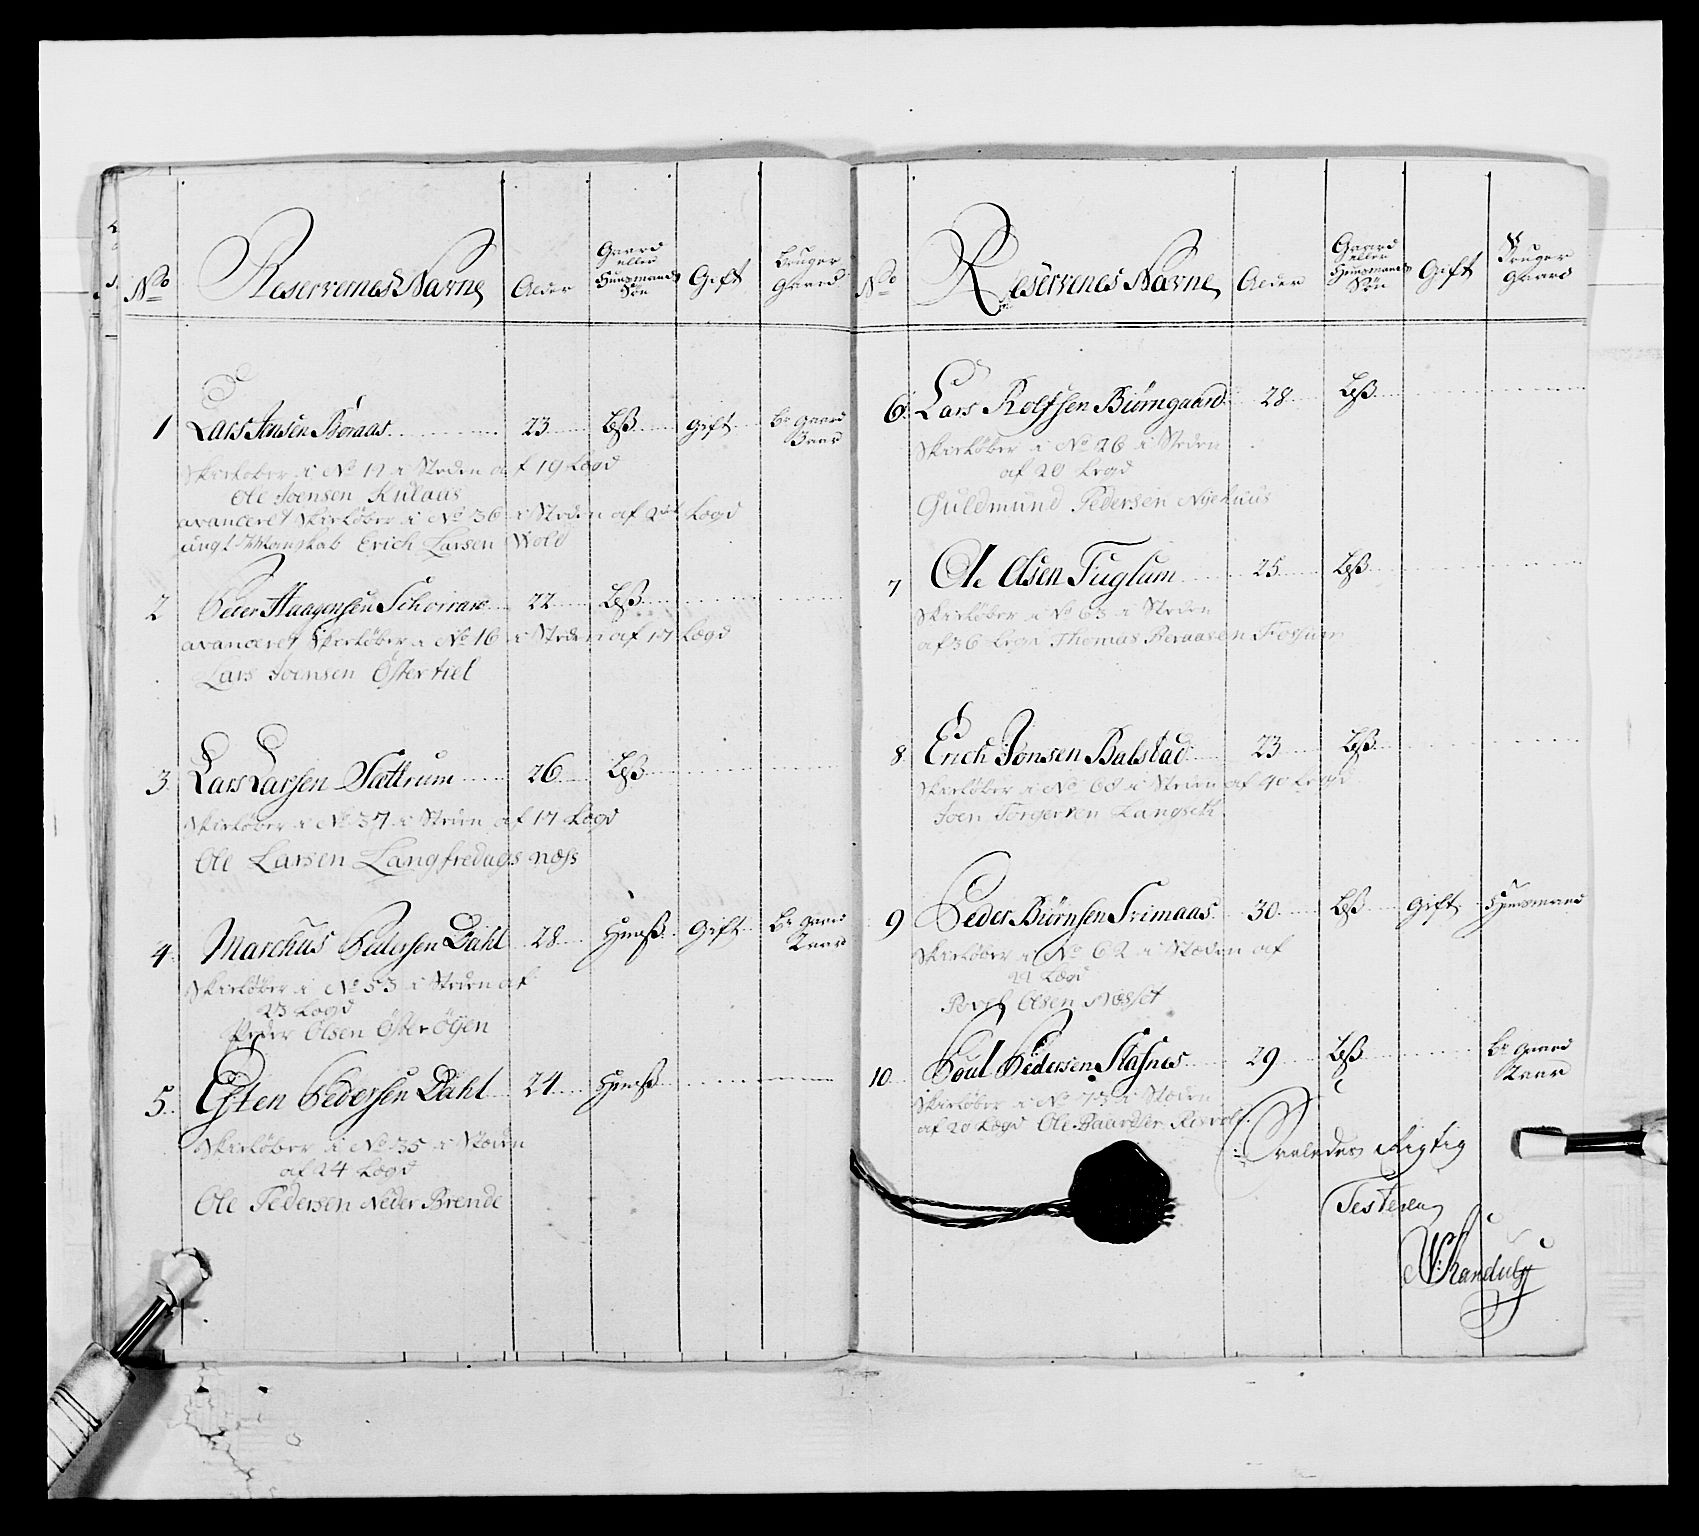 No Reservernes Navne Alder Gaard eller Huusmands Søn Gift Bruger Gaard
1 Lars Jensen Boraas 23 Bß Gift Br Gaard
Skieløber i No 17 i Steden af 19 Lægd
Ole Joensen Kulaas
avanceret Skieløber i No 36 i Steden af Lægd
ungt Mandskab Erich Larsen Wold
2 Peter Haagensen 22 Bß
avanceret Skieløber i No 16 i Steden af 17 Lægd
Lars Joensen Østertiel
3 Lars Larsen Sættrum 26 Bß
Skieløber i No 37 i Steden af 17 Lægd
Ole Larsen Langfredags næss
4 Marchus Pedersen Dahl 28 Huusß Gift Br Gaard
Skieløber i No 53 i Steden af
23 Lægd
Peder Olsen Øster Øyen
5 Esten Pedersen Dahl 24 Huusß
Skieløber i No 35 i Steden
af 24 Lægd
Ole Pedersen Neder Brende
No Reservenes Navne Alder Gaard eller Huusmands Søn Gift Bruger Gaard
6 Lars Rolfsen Biörngaard 28 Bß
Skieløber i No 26 i Steden
af 20 Lægd
Guldmund Pedersen Nyehuus
7 Ole Olsen Fuglum 25 Bß
Skieløber i No 63 i Steden
af 36 Lægd Thomas Fossum
8 Erich Jonsen Balstad 23 Bß
Skieløber i No 68 i Steden af 40 Lægd
Joen Torgersen Langseth
9 Peder Biörnsen Srimaas 30 Bß Gift Huusmand
Skieløber i No 62 i Steden af
Lægd
Olsen Næsset
10 Poul Pedersen Stasnes 29 Bß Br Gaard
Skieløber i No 73 i Steden
af 20 Lægd Ole
Saaledes Rigtig
Testerer